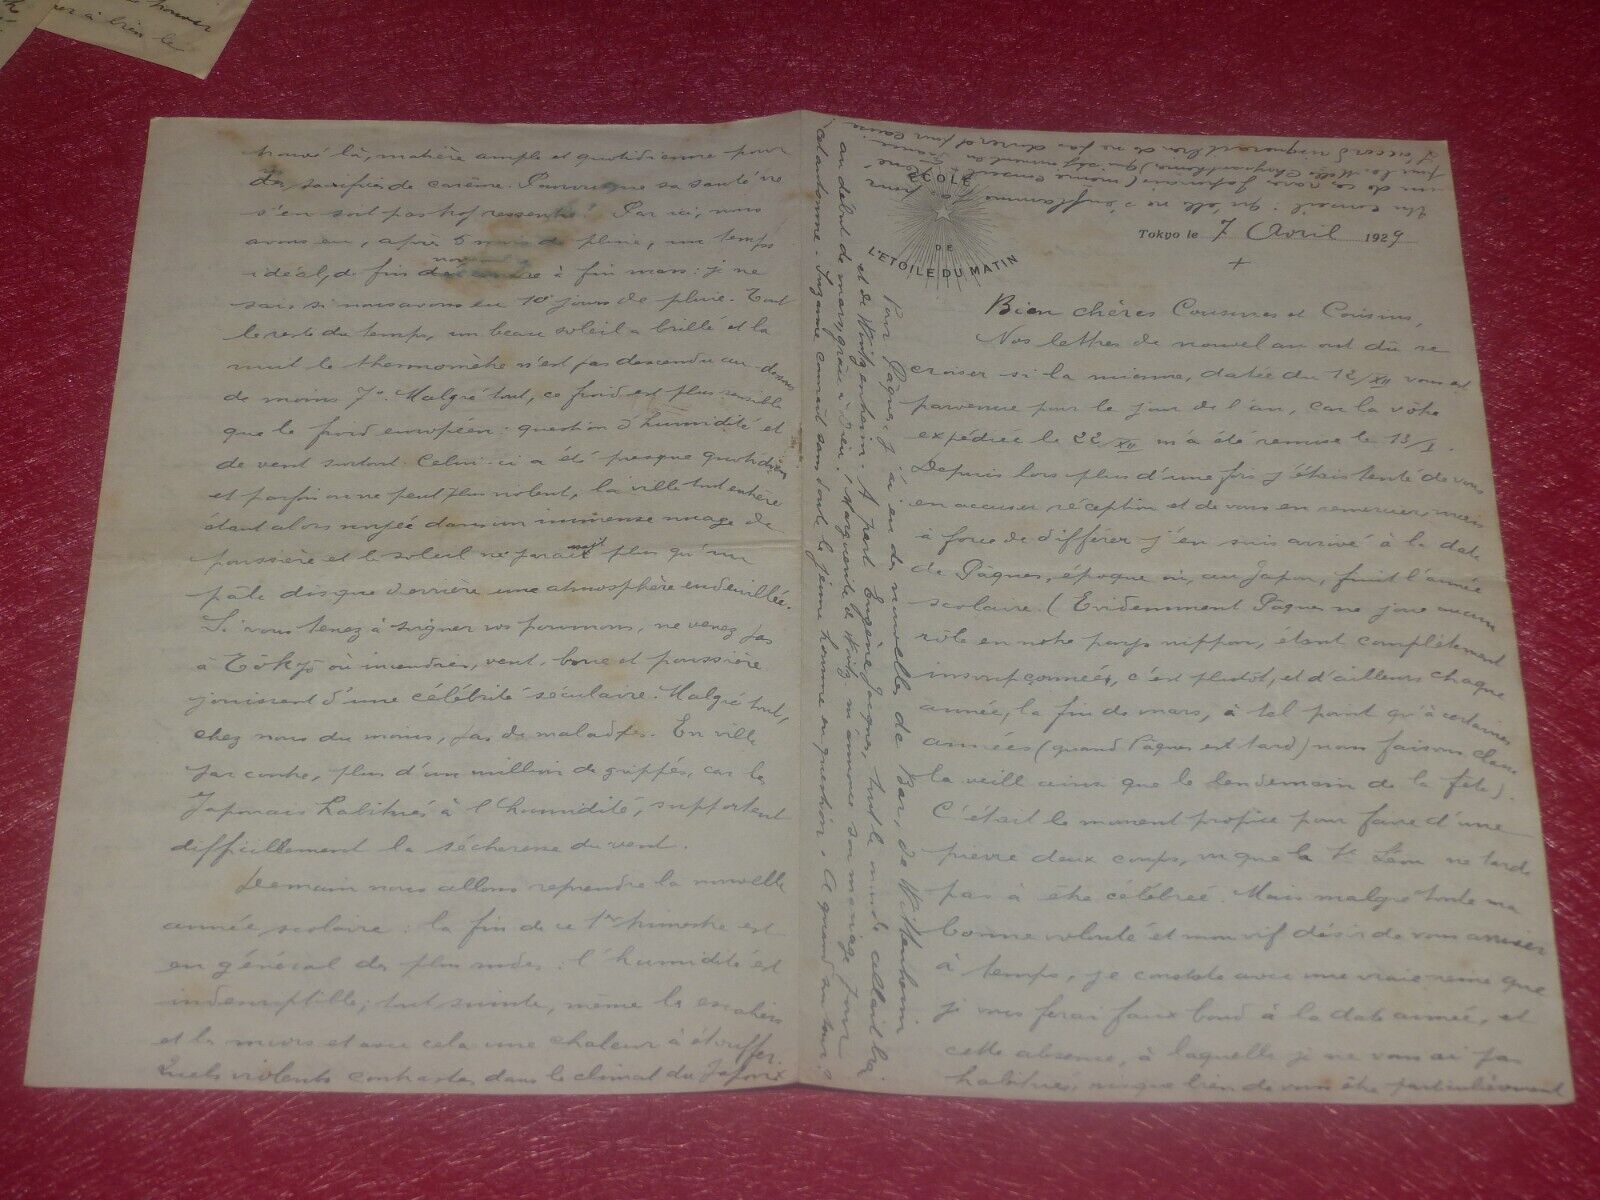 ÉCOLE
DE
L'ETOILE DU MATIN
Tokyo le 7 Avril 1929
+
Bien chères Cousines et Cousins,
Nos lettres de nouvel an ont dû se
croiser si la mienne, datée du 12/XII vous est
parvenue pour le jour de l'an, car la vôtre
expédiée le 22/XII m'a été remise le 13/I.
Depuis lors plus d'une fois j'étais tenté de vous
en accuser réception et de vous en remercier, mais
a force de différer j'en suis arrivé à la date
de Pâques, époque où, au Japon, finit l'année
scolaire. (Evidemment Pâques ne joue aucun
rôle en notre pays nippon, étant complètement
insoupçonnée, c'est plutôt, et d'ailleurs chaque
année, la fin de mars, à tel point qu'à certaines
années (quand Pâques est tard) nous faisons classe
la veille ainsi que le lendemain de la fête).
C'était le moment propice pour faire d'une
pierre deux coups, vu que la St Léon ne tarde
pas à être célébrée. Mais malgré toute ma
bonne volonté et mon vif désir de vous arriver
à temps, je constate avec une vraie peine que
je vous ferai faux bond à la date aimée, et
cette absence, à laquelle je ne vous ai pas
habitués, risque bien de vous être particulièrement
trouvé là, matière ample et quotidienne pour
des sacrifices de carême. Pourvu que sa santé ne
s'en soit pas trop ressentie! Par ici, nous
avons eu, après 5 mois de pluie, un temps
idéal, de fin novembre à fin mars: je ne
sais si nous avons eu 10 jours de pluie. Tout
le reste du temps, un beau soleil a brillé et la
nuit le thermomètre n'est pas descendu au-dessous
de moins 7°. Malgré tout, ce froid est plus sensible
que le froid européen: question d'humidité et
de vent surtout. Celui-ci a été presque quotidien
et parfois on ne peut plus violent, la ville tout entière
étant alors noyée dans un immense nuage de
poussière et le soleil ne paraissait plus qu'un
pâle disque derrière une atmosphère endeuillée.
Si vous tenez à soigner vos poumons, ne venez pas
à Tôkyô où incendies, vent, boue et poussière
jouissent d'une célébrité séculaire. Malgré tout,
chez nous du moins, pas de malades. En ville
par contre, plus d'un million de grippés, car les
Japonais habitués à l'humidité, supportent
difficilement la sécheresse du vent.
Demain nous allons reprendre la nouvelle
année scolaire: la fin de ce 1er trimestre est
en général des plus rudes: l'humidité est
indescriptible; tout suinte, même les escaliers
et les murs et avec cela une chaleur à étouffer.
Quels violents contrastes dans le climat du Japon
Pour Pâques j'ai eu des nouvelles de Bar, de Wittenheim
et de Wintzenheim. A part Eugène Jacques, tout le monde allait bien
au début de mars, grâce à Dieu. Marguerite de Wintz. m'annonce son mariage pour
cet automne. Suzanne connaît sans doute le jeune homme en question. A quand son tour?
Un conseil: qu'elle ne s'enflamme pas pour
un de ces Japonais (même